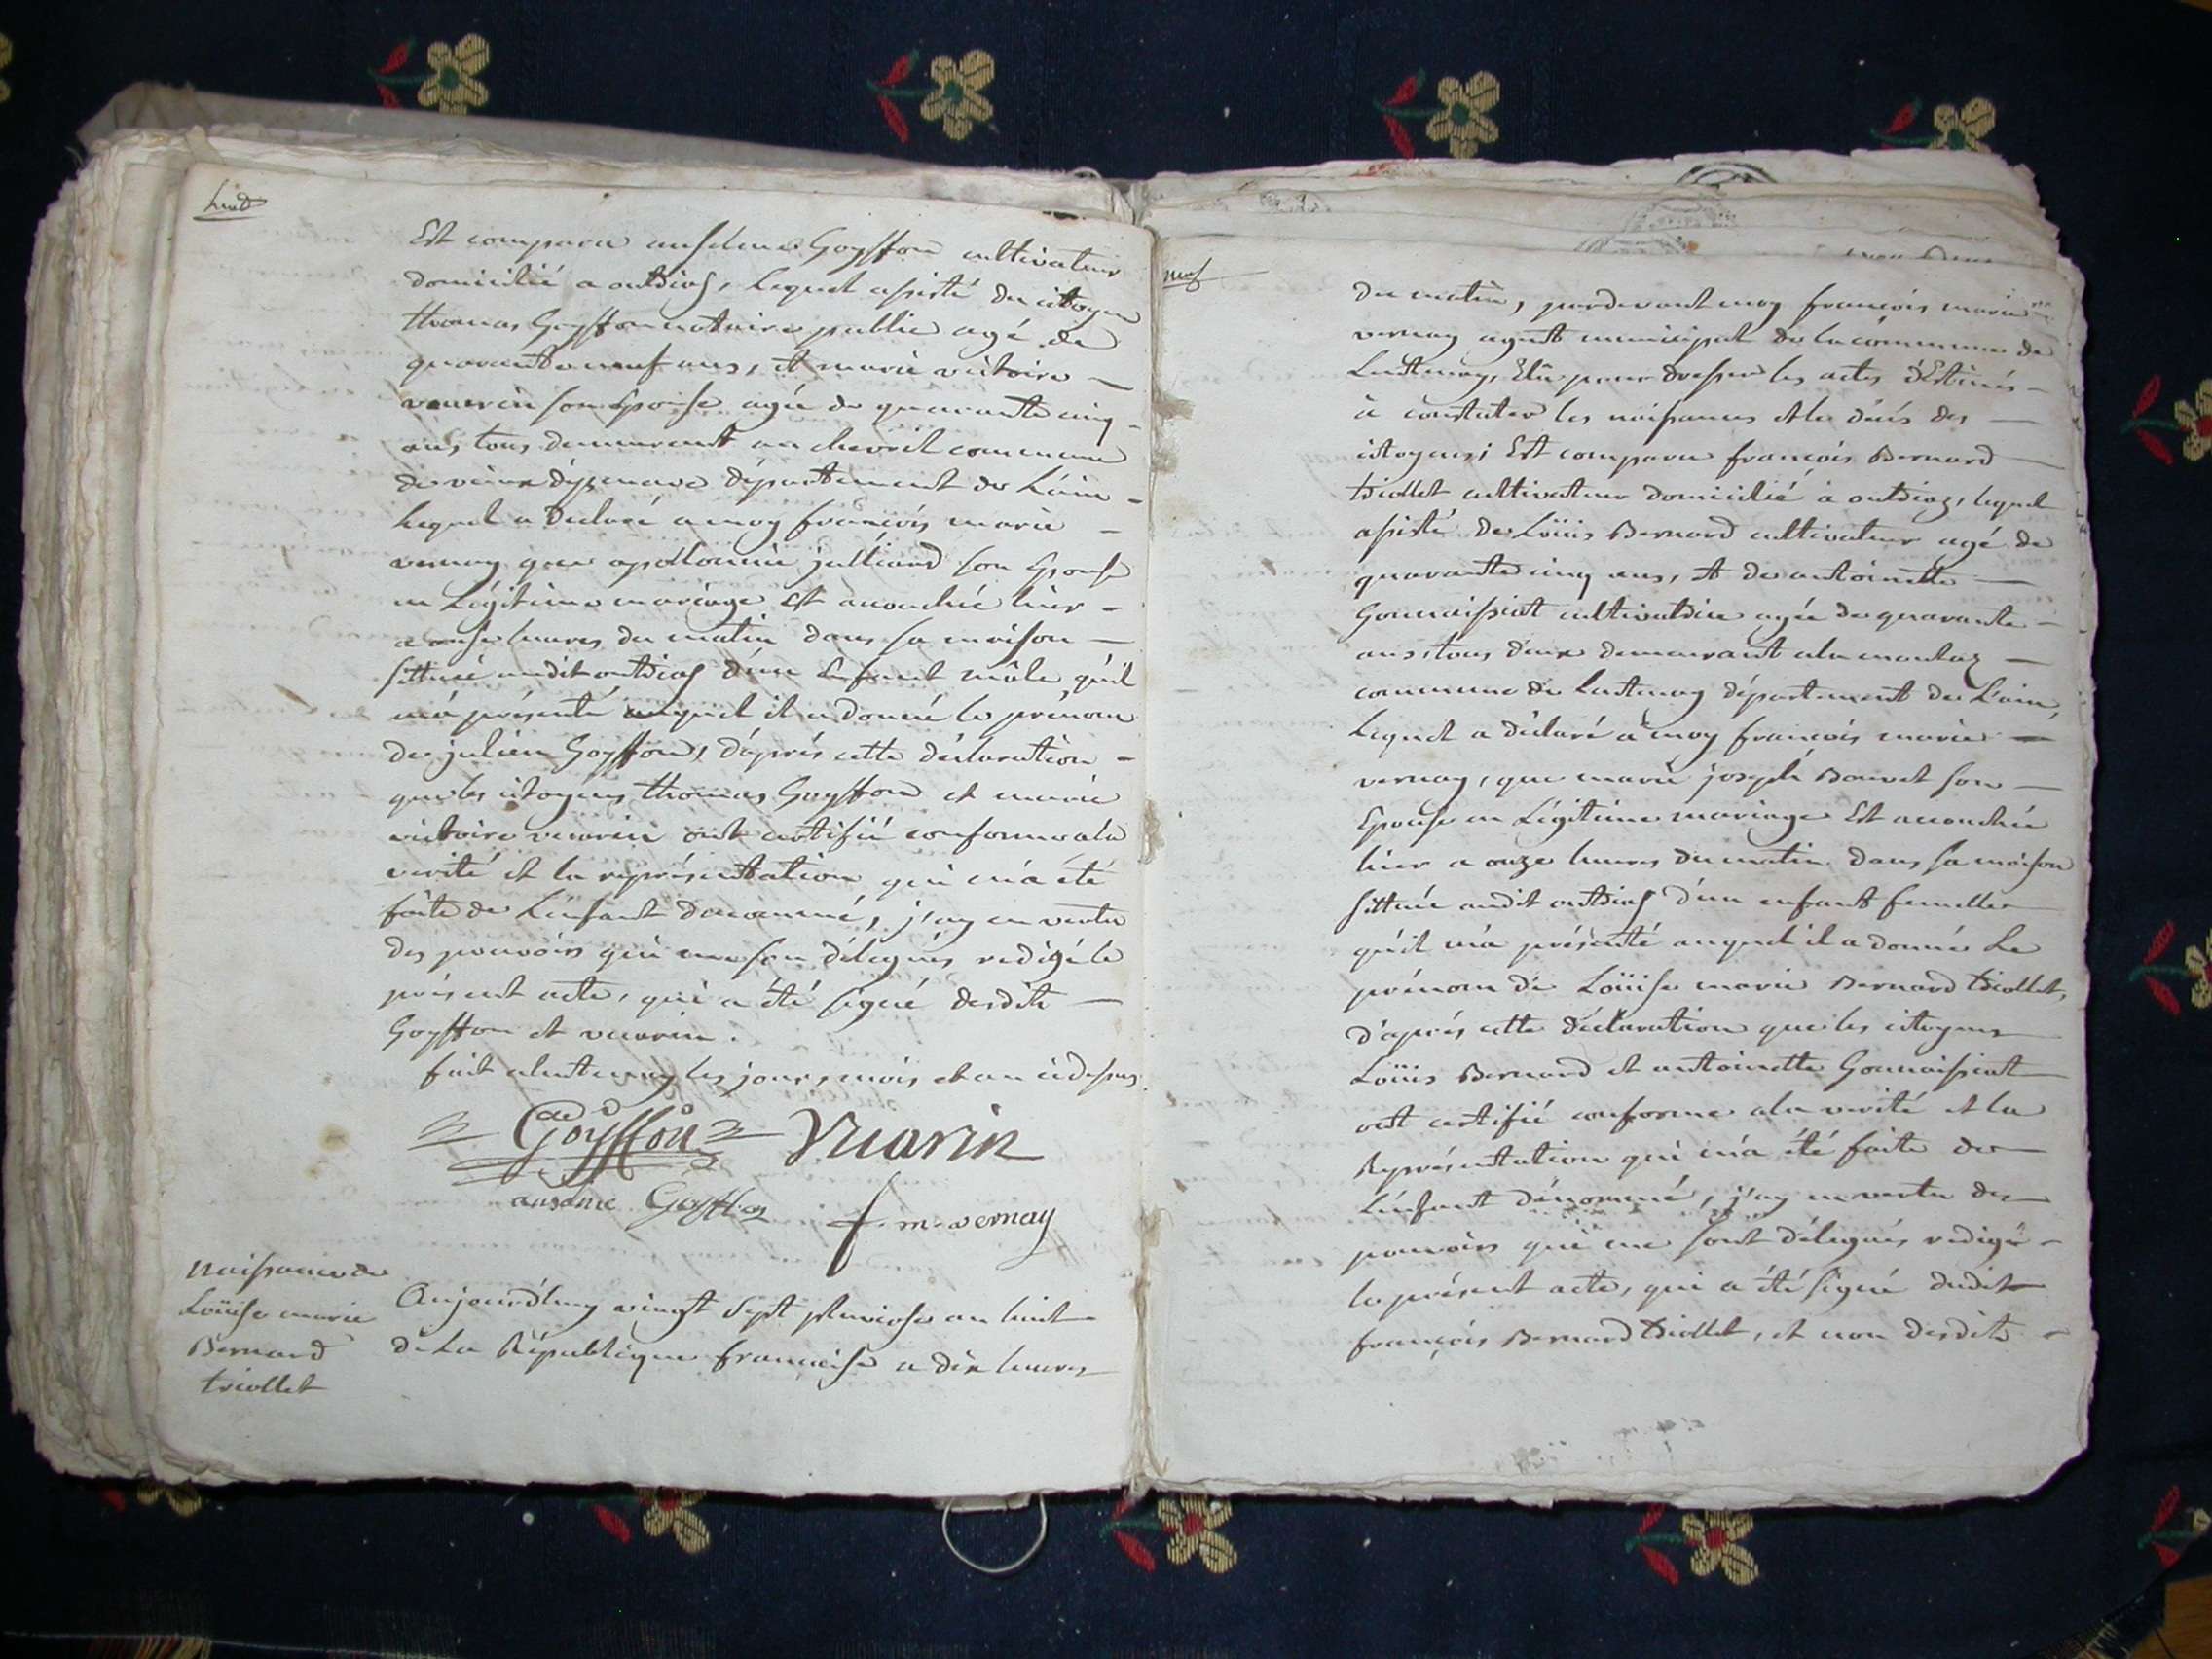 huit
Est comparu anselme Goyffon cultivateur
domicilié a outriaz, lequel assisté du citoyen
thomas Goyffon notaire public agé de
quarante neuf ans, et marie victoire
vuarin son Epouse agée de quarante cinq
ans tous demeurant au chevril commune
de vieux département de L'ain
lequel a declaré a moy françois marie
vernay que apollonie julliard son Epouse
en Légitime mariage Est accouchée hier
a onze heures du matin dans sa maison
sittuée audit outriaz d'un Enfant mâle qu'il
m'a présenté auquel il a donné le prénom
de julien Goyffon, d'aprés cette déclaration
que les citoyens thomas Goyffon et marie
victoire vuarin ont certifié conforme a la
verité et la représentation qui m'a été
faite de L'enfant dénommé, j'ay en vertu
des pouvoirs qui me son délegués redigé le
présent acte, qui a été signé desdits
Goyffon et vuarin.
fait a lantenay les jours, mois et an cidessus
Goyffon Vuarin
anselme Goyffon f. m. vernay
Naissance de
Loüise marie
Bernard
triollet
Aujourd'huy vingt Sept pluviose an huit
de La République francaise a dix heures
neuf
du matin, pardevant moy françois marie
vernay agent municipal de la commune de
Lantenay, Elû pour dresser les actes déstinés
à constater les naissances et le décés des
citoyens; Est comparu françois Bernard
triollet cultivateur domicilié à outriaz, lequel
assisté de Loüis Bernard cultivateur agé de
quarante cinq ans, et de antoinette
Gonnaissiat cultivatrice agée de quarante
ans, tous deux demeurant a la montaz
commune de Lantenay département de L'ain,
Lequel a déclaré a moy francois marie
vernay, que marie joseph Bonvet son
Epouse en Légitime mariage Est accouchée
hier a onze heures du matin dans sa maison
sittuée audit outriaz d'un enfant femelle
qu'il m'a présenté auquel il a donné le
prénom de Loüise marie Bernard triollet,
d'aprés cette déclaration que les citoyens
Loüis Bernard et antoinette Gonnaissiat
ont certifié conforme a la verité et la
Représentation qui m'a été faite de
L'enfant dénommé, j'ay en vertu des
pouvoirs qui me sont délegués redigé
le présent acte, qui a été signé dudit
françois Bernard triollet, et non desdits